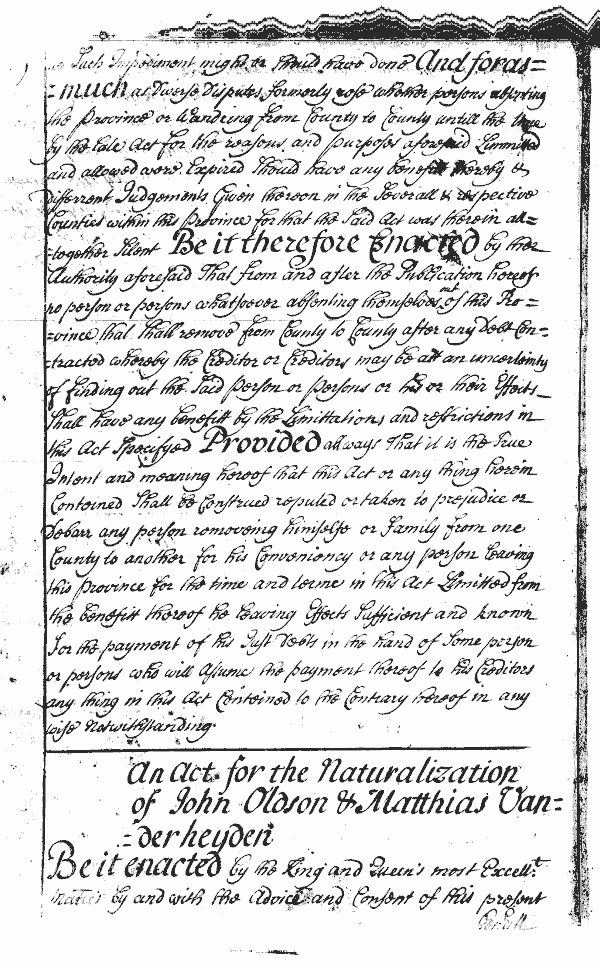 Such Impediment might or should have done And foras=
=much as Diverse Disputes formerly rose whether persons absenting
the Province or Wandring from County to County untill the time
by the Late Act for the reasons and purposes aforesaid Limmited
and allowed were Expired Should have any benefitt thereby &
different Judgements Given thereon in the Severall & respective
Counties within this Province for that the Said Act was therein al=
=together Silent Be it therefore Enacted by the
Authority aforesaid That from and after the Publication hereof
no person or persons whatsoever absenting themselves out of this Pro=
=vince that Shall remove from County to County after any Debt Con=
=tracted whereby the Creditor or Creditors may be att an uncertainty
of finding out the Said Person or Persons or his or their Effects
Shall have any benefitt by the Limittations and restrictions in
this Act Specifyed Provided allways That it is the True
Intent and meaning hereof that this Act or any thing herein
Conteined Shall be Construed reputed or taken to prejudice or
Debarr any person removeing himselfe or Family from one
County to another for his Conveniency or any person Leaving
this Province for the time and terme in this Act Limitted from
the benefitt thereof he Leaving Effects Sufficient and known
For the payment of his Just Debts in the hand of Some person
or persons who will Assume the payment thereof to his Creditors
any thing in this Act Conteined to the Contrary thereof in any
wise Notwithstanding.
An Act for the Naturalization
of John Oldson & Matthias Van=
=derheyden
Be it enacted by the King and Queen's most Excell.t
Maties by and with the Advice and Consent of this present